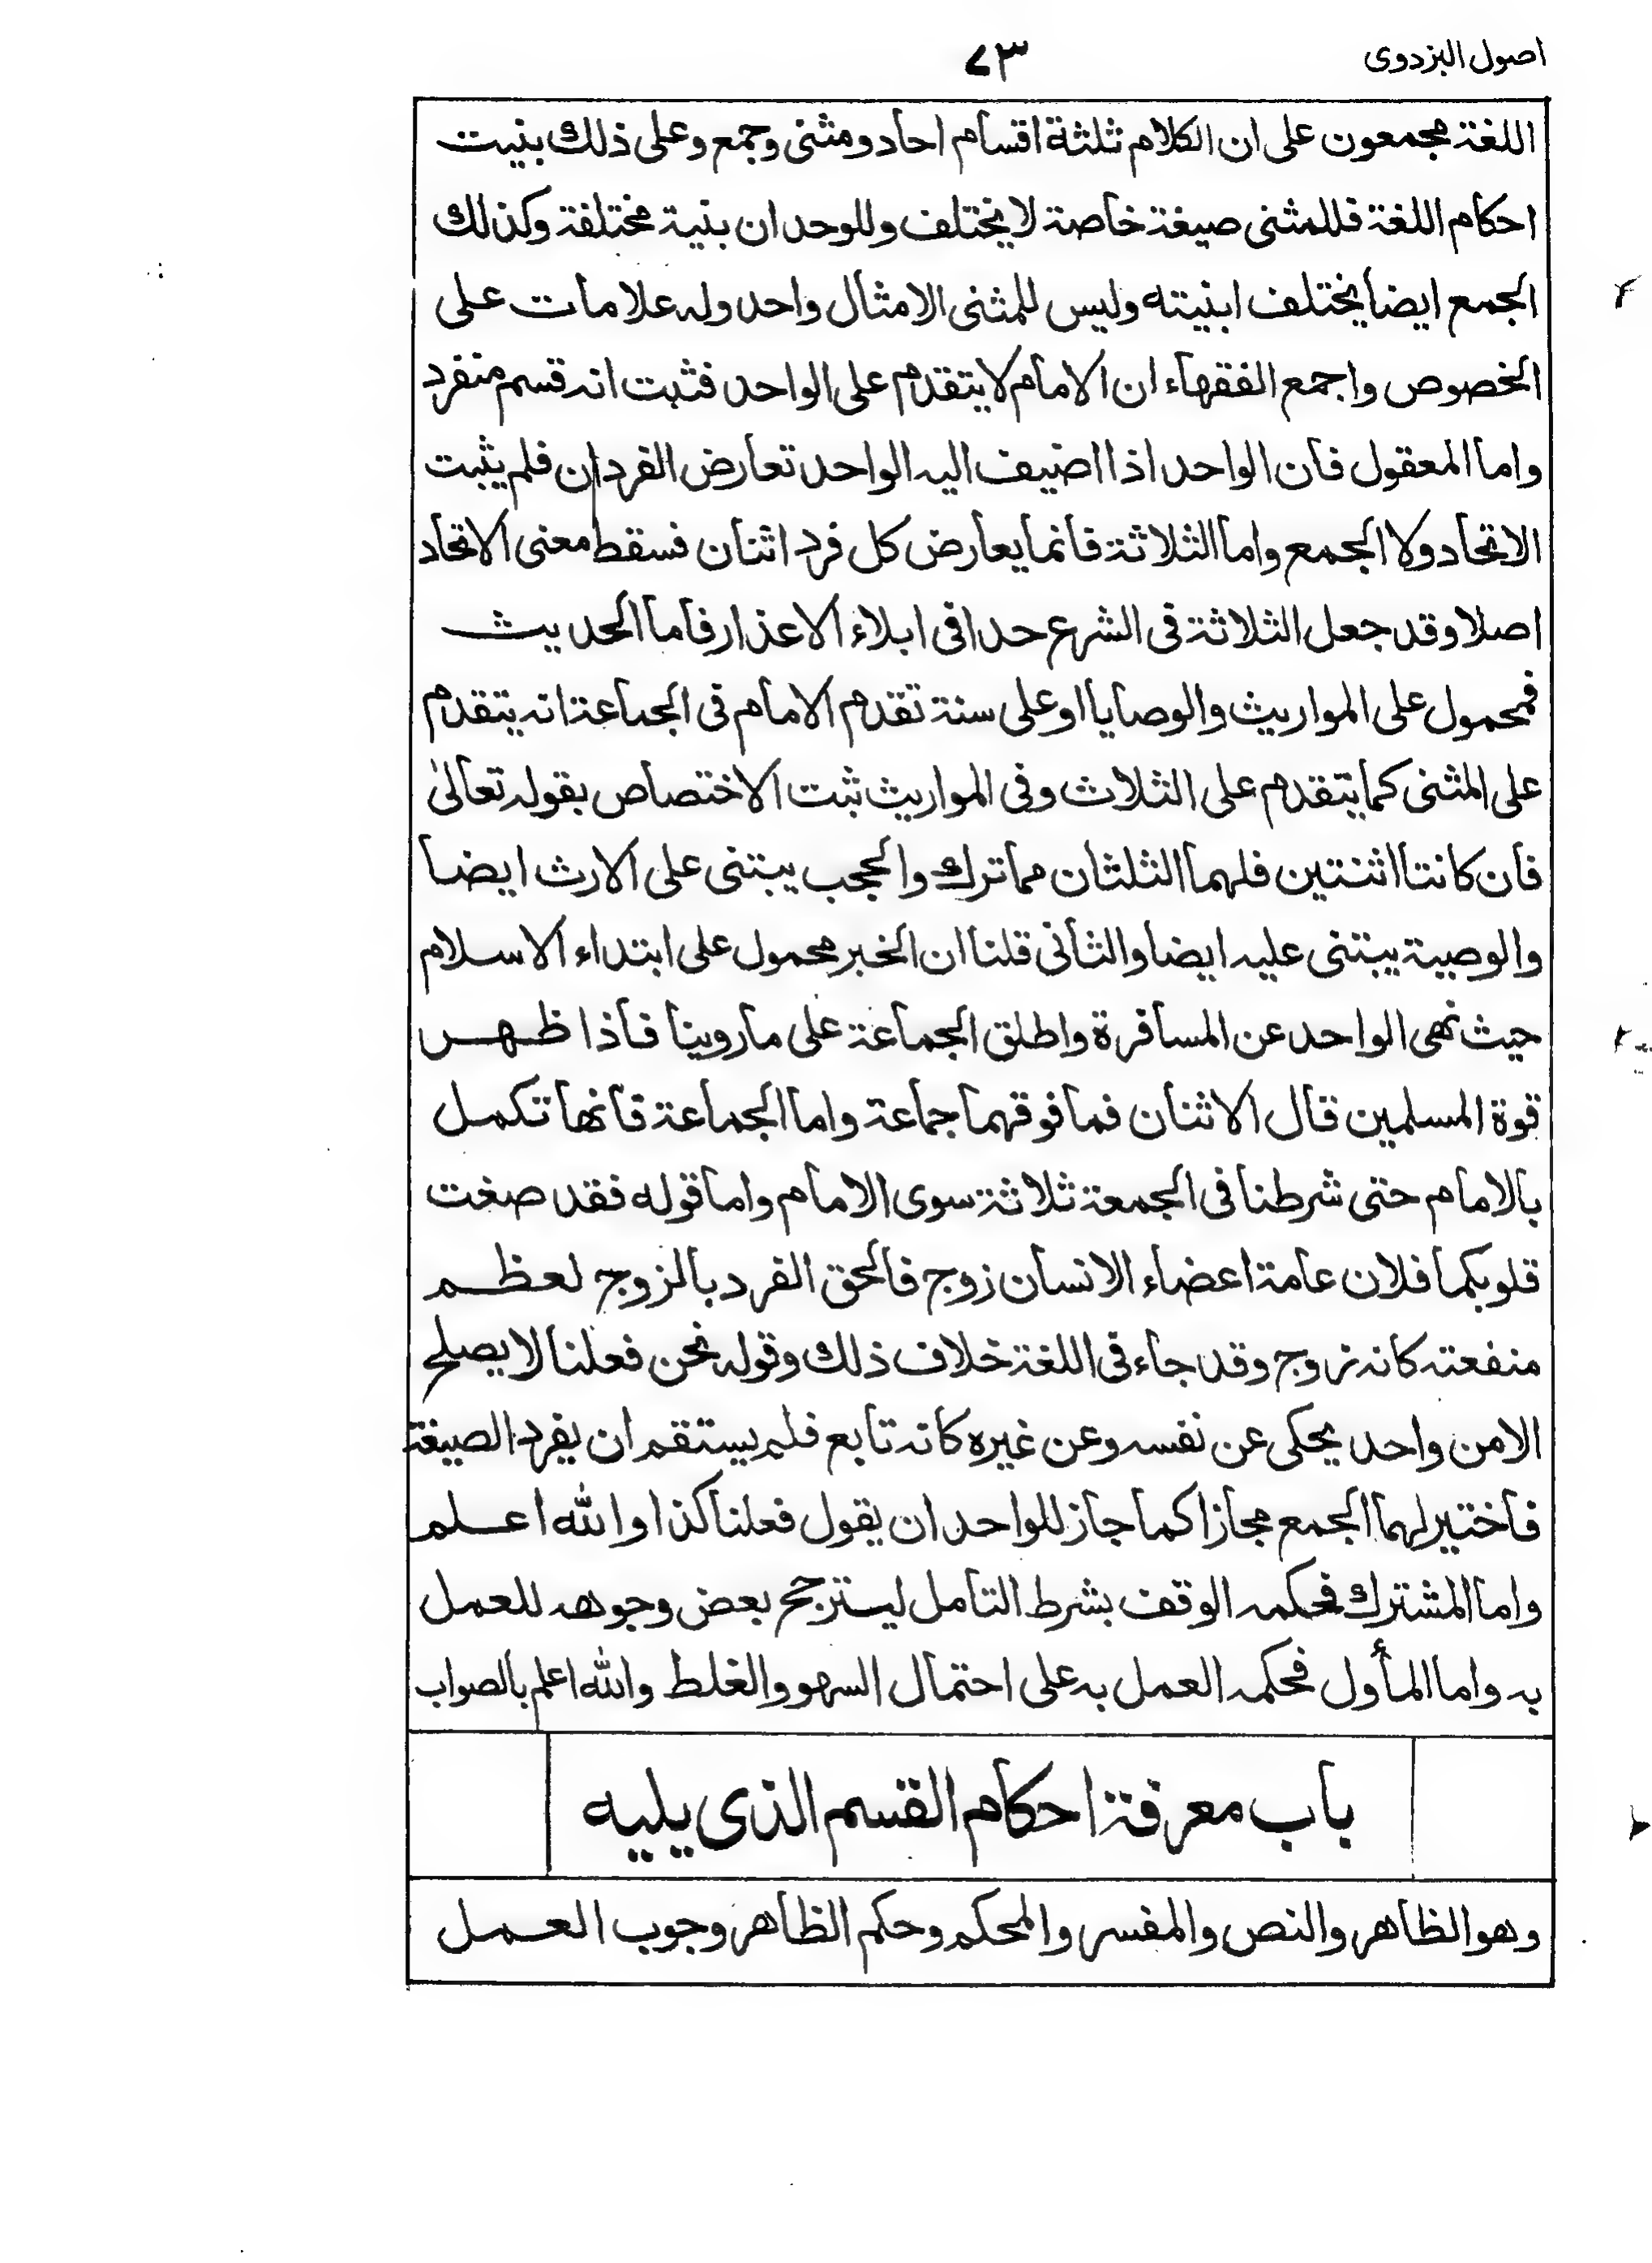 اصول البزدوی
٧٣
اللغة مجمعون على ان الكلام ثلثة اقسام احاد ومثنى وجمع وعلى ذلك بنيت
احكام اللغة فللمثنى صيغة خاصة لا يختلف وللوحدان بنية مختلفة وكذلك
الجمع ايضا يختلف ابنيته وليس للمثنى الا مثال واحد وله علامات على
الخصوص واجمع الفقهاء ان الامام لا يتقدم على الواحد فثبت انه قسم منفرد
واما المعقول فان الواحد اذا اضيف اليه الواحد تعارض الفردان فلم يثبت
الاتحاد ولا الجمع واما الثلاثة فانما يعارض كل فرد اثنان فسقط معنى الاتحاد
اصلا وقد جعل الثلاثة فى الشرع حدا فى ابلاء الاعذار فاما الحديث
فمحمول على المواريث والوصايا او على سنة تقدم الامام فى الجماعة انه يتقدم
على المثنى كما يتقدم على الثلاث وفى المواريث ثبت الاختصاص بقوله تعالىٰ
فان كانتا اثنتين فلهما الثلثان مما ترك والحجب يبتنى على الارث ايضا
والوصية يبتنى عليه ايضا والثانى قلنا ان الخبر محمول على ابتداء الاسلام
حيث نهى الواحد عن المسافرة واطلق الجماعة على ما روينا فاذا ظهر
قوة المسلمين قال الاثنان فما فوقهما جماعة واما الجماعة فانها تكمل
بالامام حتى شرطنا فى الجمعة ثلاثة سوى الامام واما قوله فقد صغت
قلوبكما فلان عامة اعضاء الانسان زوج فالحق الفرد بالزوج لعظم
منفعته كانه زوج وقد جاء فى اللغة خلاف ذلك وقوله نحن فعلنا لا يصلح
الا من واحد يحكى عن نفسه وعن غيره كانه تابع فلم يستقم ان يفرد الصيغة
فاختير لهما الجمع مجازا كما جاز للواحد ان يقول فعلنا كذا والله اعلم
واما المشترك فحكمه الوقف بشرط التامل ليترجح بعض وجوهه للعمل
به واما المأول فحكمه العمل به على احتمال السهو والغلط والله اعلم بالصواب
باب معرفة احكام القسم الذى يليه
وهو الظاهر والنص والمفسر والمحكم وحكم الظاهر وجوب العمل